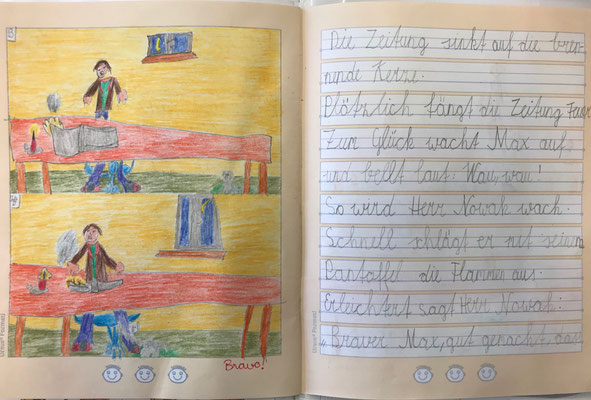 Bravo!
Die Zeitung sinkt auf die bren-
nende Kerze.
Plötzlich fängt die Zeitung Feuer.
Zum Glück wacht Max auf
und bellt laut: Wau, wau!
So wird Herr Nowak wach.
Schnell schlägt er mit seinem
Pantoffel die Flammen aus.
Erleichtert sagt Herr Nowak:
„Braver Max, gut gemacht, das